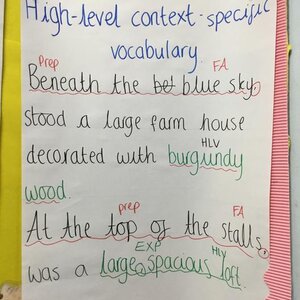 High-level context-specific
vocabulary.
Prep FA
Beneath the bet blue sky,
stood a large farm house
HLV
decorated with burgundy
wood.
prep FA
At the top of the stalls,
EXP HLV
was a large, spacious loft.